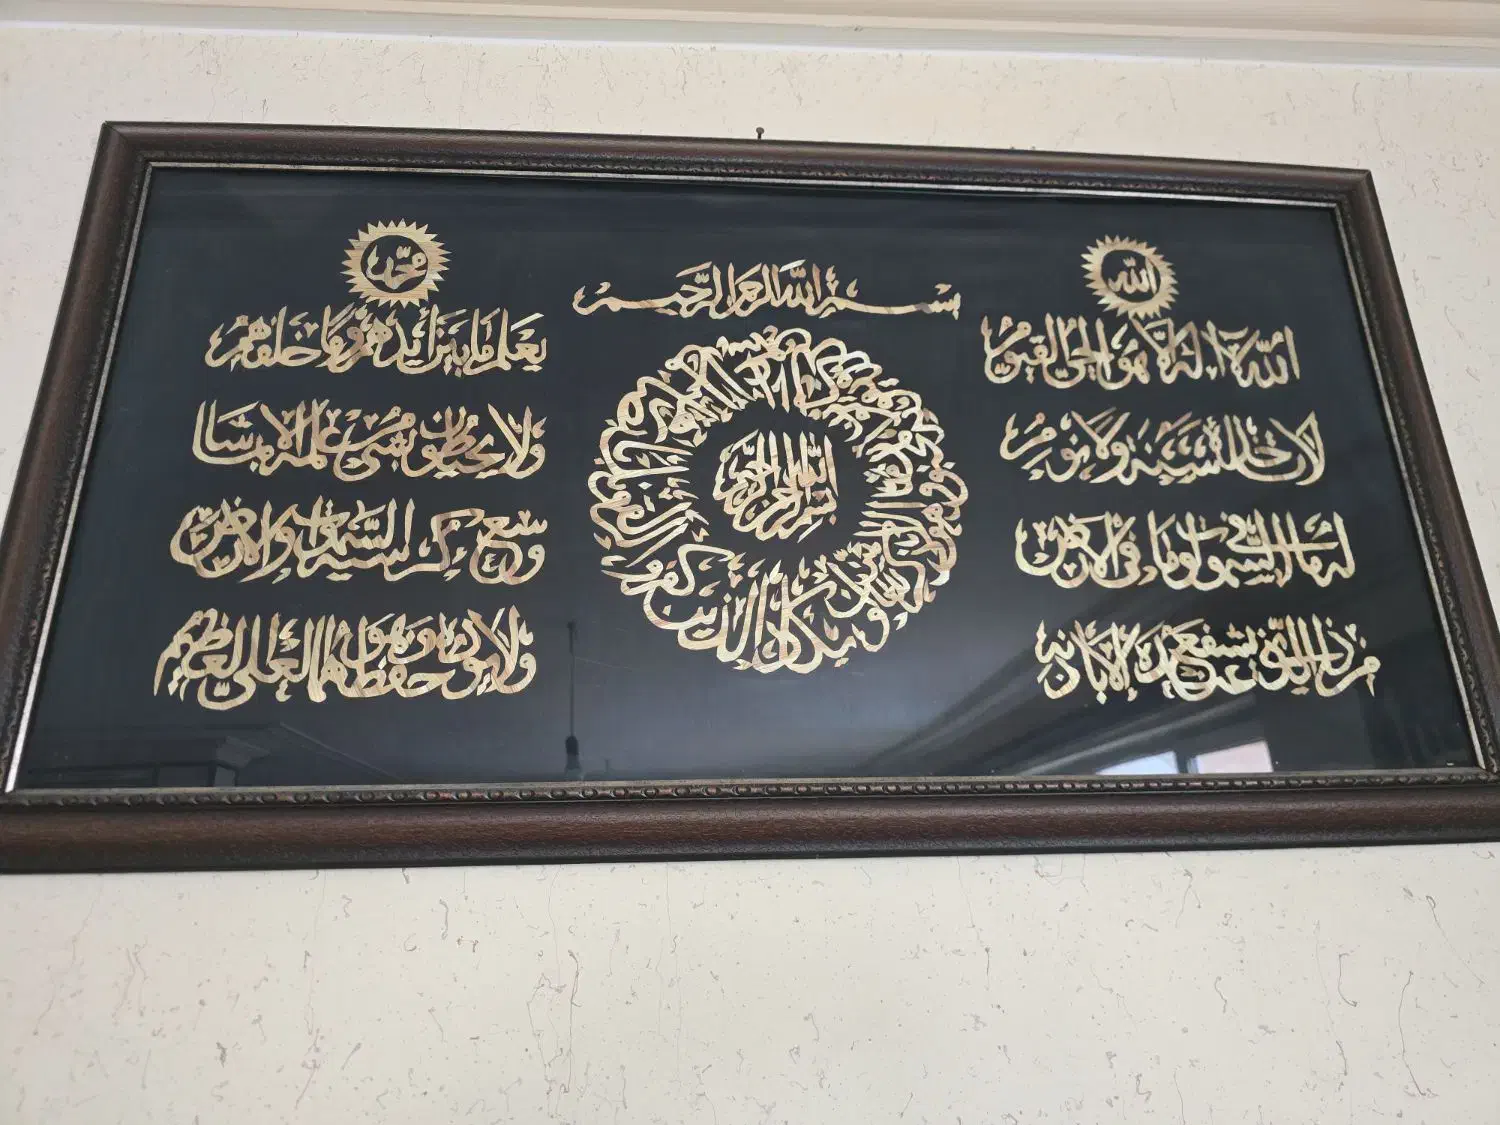 الله
محمد
بسم الله الرحمن الرحيم
الله لا إله إلا هو الحي القيوم
لا تأخذه سنة ولا نوم
له ما في السموات وما في الأرض
من ذا الذي يشفع عنده إلا بإذنه
يعلم ما بين أيديهم وما خلفهم
ولا يحيطون بشيء من علمه إلا بما شاء
وسع كرسيه السموات والأرض
ولا يؤده حفظهما وهو العلي العظيم
بسم الله الرحمن الرحيم
وإن يكاد الذين كفروا